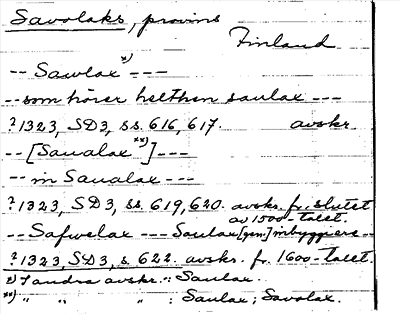 Savolaks, provins
Finland
-- Sawlax *) ---
-- som hörer helthen saulax ---
? 1323, SD3, ss. 616, 617. avskr.
-- [Saualax **)] ---
-- in Saualax ---
? 1323, SD3, ss. 619, 620. avskr. fr. slutet
av 1500-talet.
-- Safwelax --- Saulax [gen] inbyggiere --
? 1323, SD3, s. 622. avskr. fr. 1600-talet.
*) I andra avskr.: Saulax.
**) " " " : Saulax; Savolax.